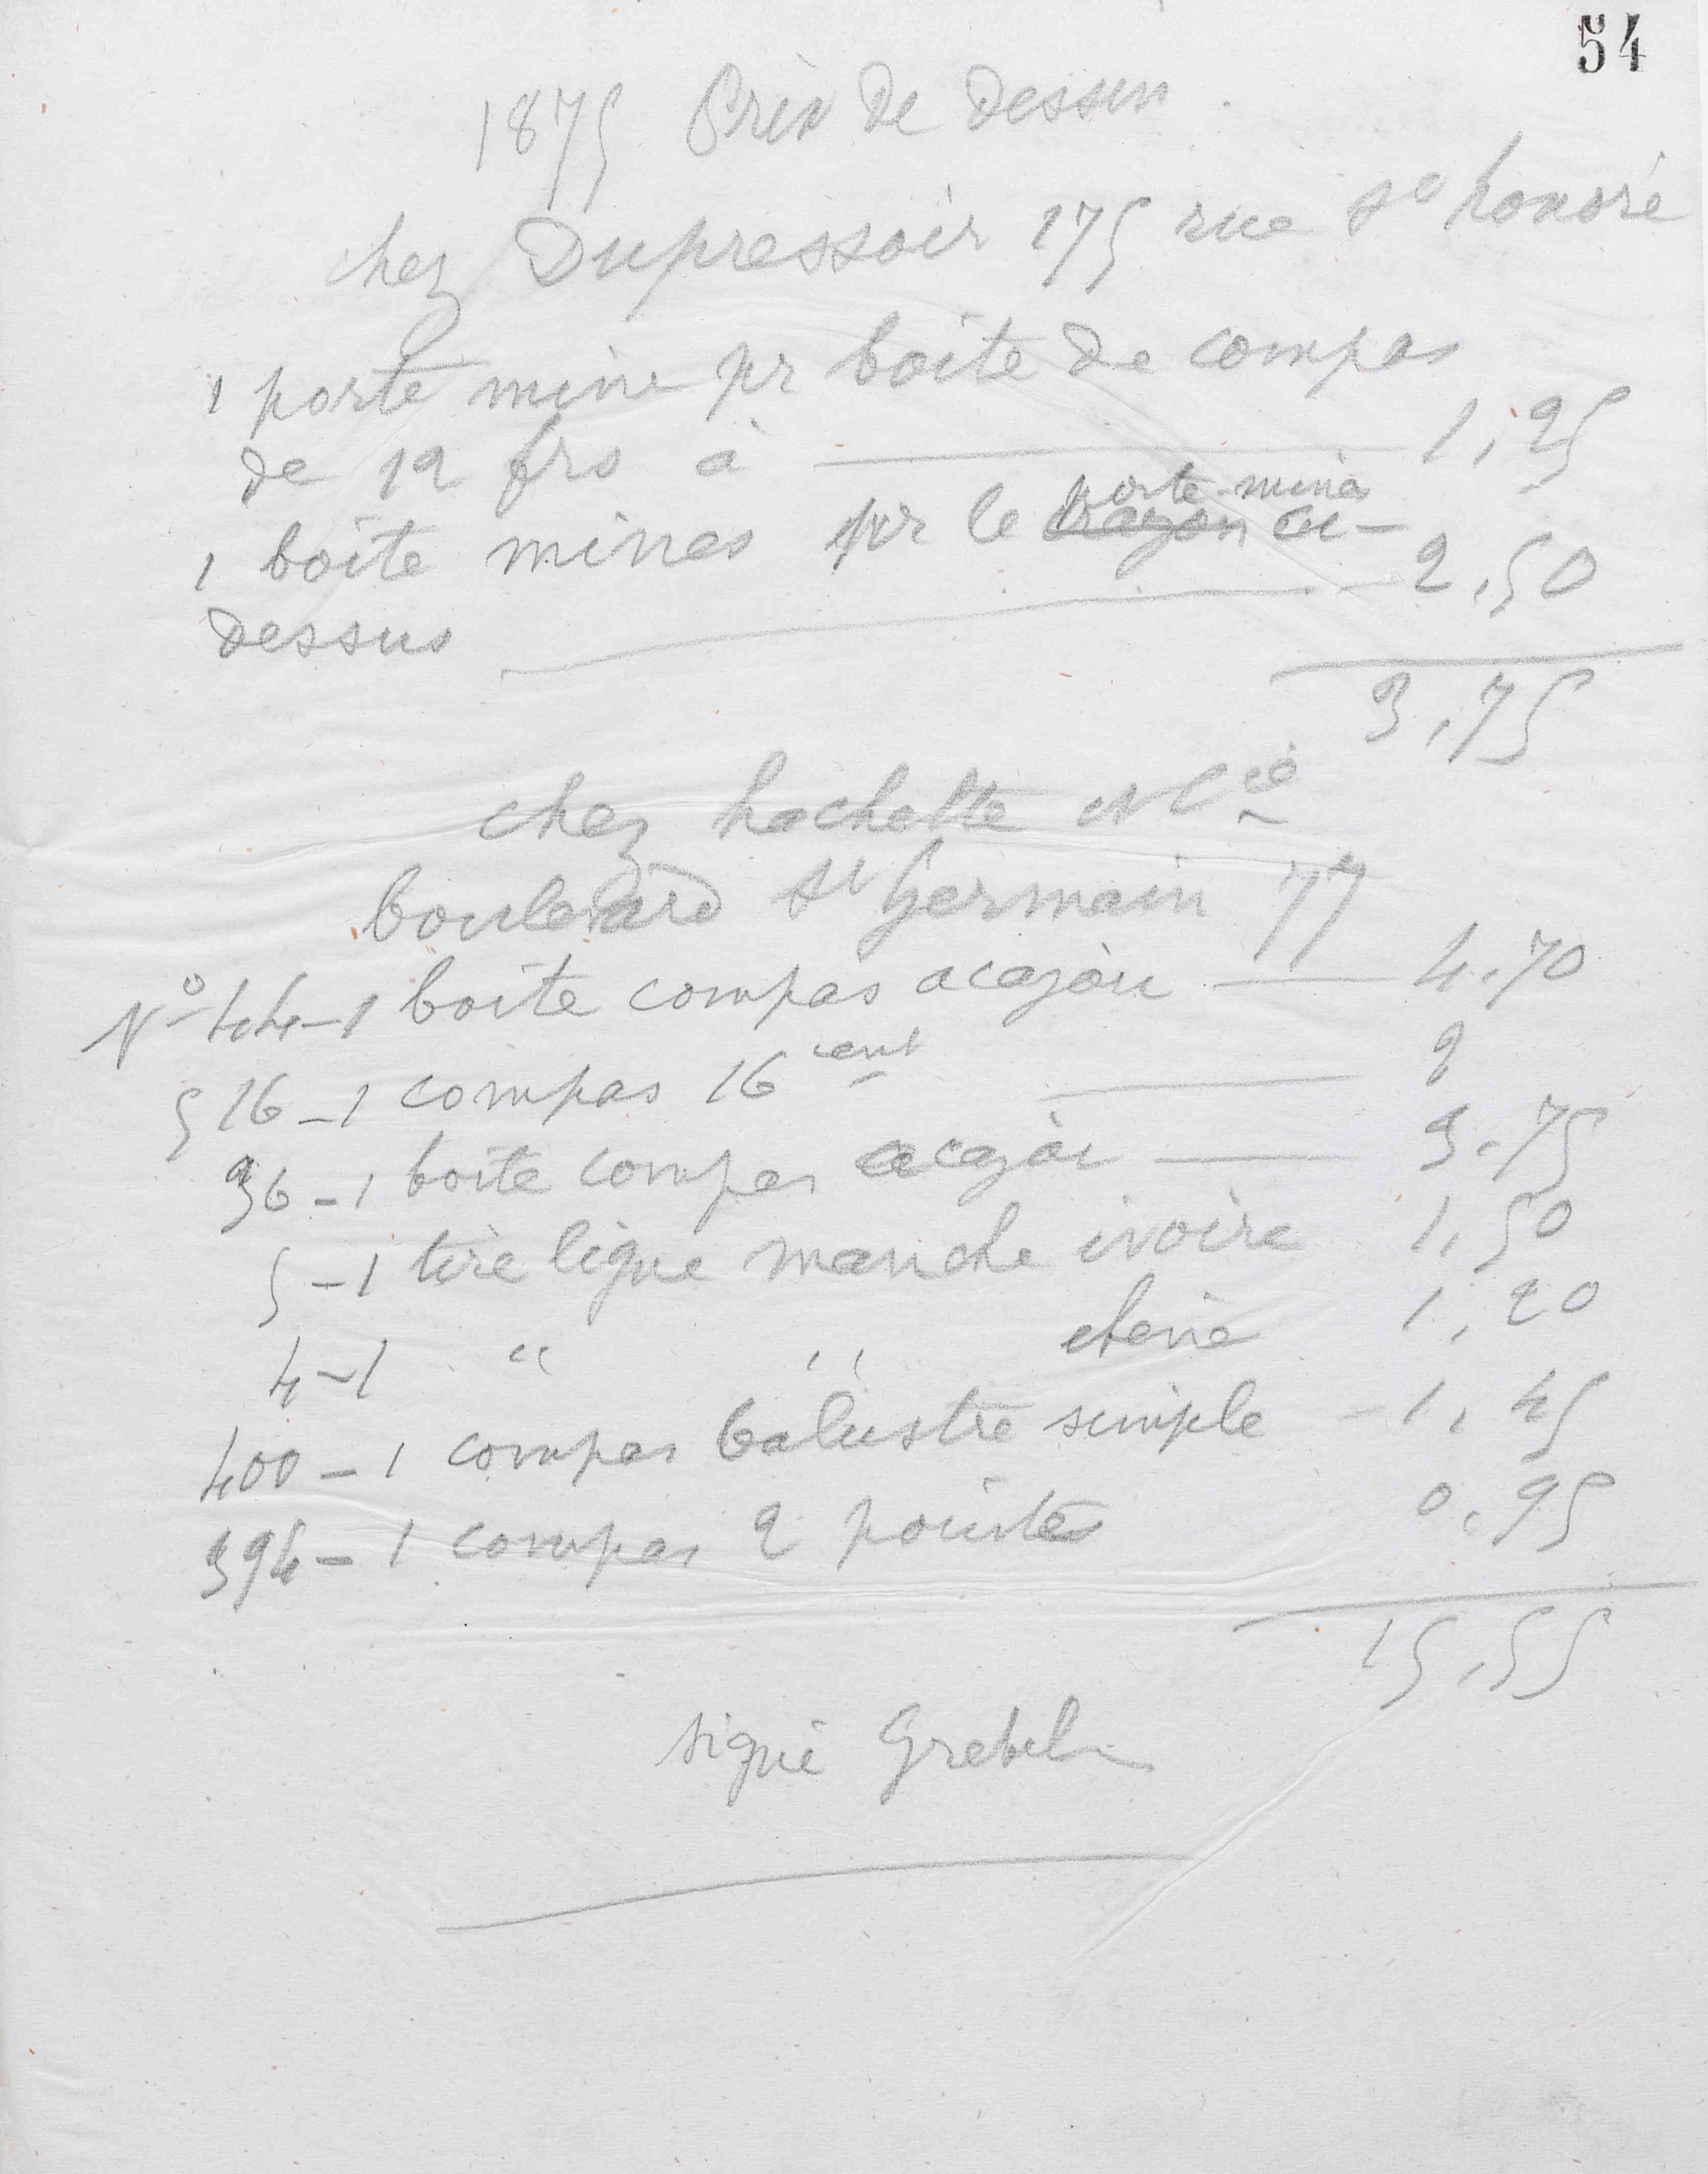 54
1875 Prix de dessin.
chez Dupressoir 175 rue St honoré
1 porte mine pr boîte de compas
de 12 frs à 1,25
porte-mine
1 boîte mines pr le crayon ci-
dessus 2,50
3,75
chez hachette et Cie
boulevard St Germain 77
No 44-1 boîte compas acajou 4.70
516-1 compas 16 cent 2
36-1 boîte compas acajou 3.75
5-1 tire ligne manche ivoire 1,50
4-1 " " ebene 1,20
400-1 compas balustre simple - 1,45
394-1 compas 2 pointes 0,95
15,55
signé Grebel